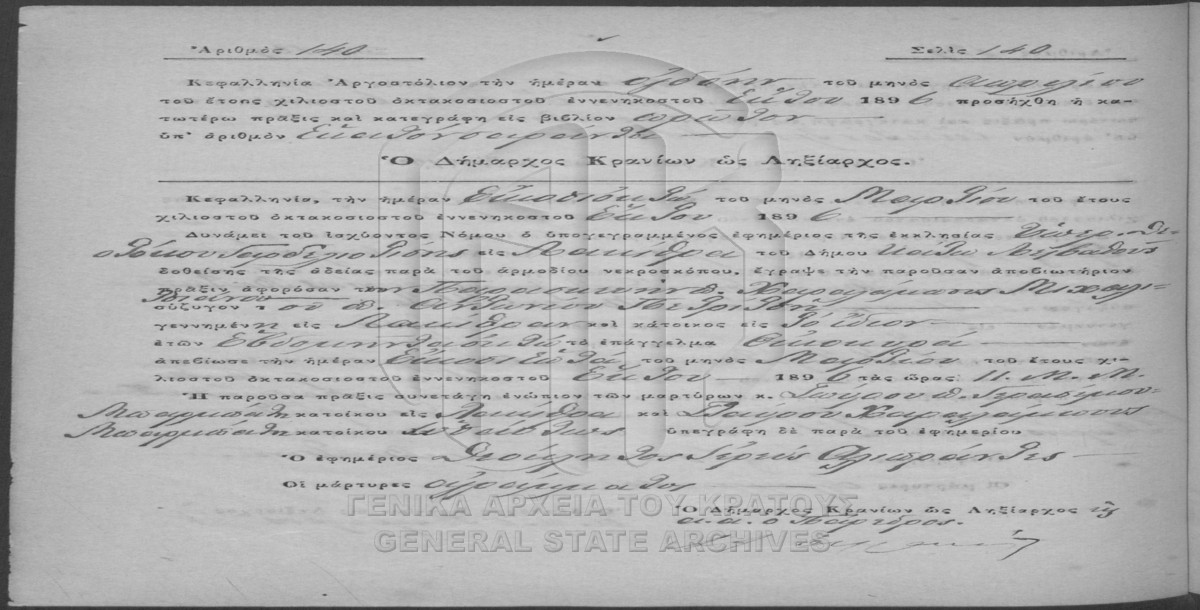 Ἀριθμὸς 140 Σελὶς 140
Κεφαλληνία Ἀργοστόλιον τὴν ἡμέραν ὀγδόην τοῦ μηνὸς Απριλίου
τοῦ ἔτους χιλιοστοῦ ὀκτακοσιοστοῦ ἐννενηκοστοῦ Εκτου 1896 προσήχθη ἡ κα-
τωτέρω πρᾶξις καὶ κατεγράφη εἰς βιβλίον πρωτον
ὑπ' ἀριθμὸν Εκατόν σαράντα
Ὁ Δήμαρχος Κρανίων ὡς Ληξίαρχος.
Κεφαλληνία, τὴν ἡμέραν Εικοσιοκτώ τοῦ μηνὸς Μαρτίου τοῦ ἔτους
χιλιοστοῦ ὀκτακοσιοστοῦ ἐννενηκοστοῦ Εκτου 1896
Δυνάμει τοῦ ἰσχύοντος Νόμου ὁ ὑπογεγραμμένος ἐφημέριος τῆς ἐκκλησίας Υπερ. Θε-
οτόκου εἰς Λακήθρα τοῦ Δήμου
δοθείσης τῆς ἀδείας παρὰ τοῦ ἁρμοδίου νεκροσκόπου, ἔγραψε τὴν παροῦσαν ἀποβιωτήριον
πρᾶξιν ἀφορῶσαν την Παρασκευήν Χαραλάμπους
σύζυγον τοῦ π.
γεννημένη εἰς Λακήθραν καὶ κάτοικος εἰς τό ίδιον
ἐτῶν τὸ ἐπάγγελμα Οικοκυρά
ἀπεβίωσε τὴν ἡμέραν Εικοσιεπτά τοῦ μηνὸς Μαρτίου τοῦ ἔτους χι-
λιοστοῦ ὀκτακοσιοστοῦ ἐννενηκοστοῦ Εκτου 1896 τὰς ὥρας 11. Μ. Μ.
Ἡ παροῦσα πρᾶξις συνετάγη ἐνώπιον τῶν μαρτύρων κ. Σπύρου π. Γερασίμου
Μπαρμπάτη κατοίκου εἰς Λακήθρα καὶ Σταύρου Χαραλάμπους
Μπαρμπάτη κατοίκου ὑπεγράφη δὲ παρὰ τοῦ ἐφημερίου
Ὁ ἐφημέριος Ιερεύς
Οἱ μάρτυρες αγράμματοι
Ὁ Δήμαρχος Κρανίων ὡς Ληξίαρχος
α.α. ο Πάρεδρος.
ΓΕΝΙΚΑ ΑΡΧΕΙΑ ΤΟΥ ΚΡΑΤΟΥΣ
GENERAL STATE ARCHIVES